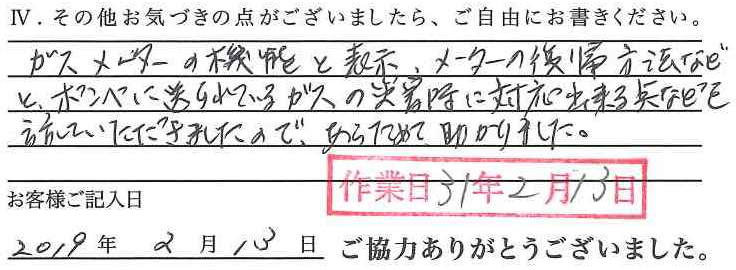 Ⅳ．その他お気づきの点がございましたら、ご自由にお書きください。
ガスメーターの機能と表示、メーターの復帰方法など
と、ボンベに送られているガスの災害時に対応出来る点などを
話していただきましたので、あらためて助かりました。
作業日31年2月13日
お客様ご記入日
2019年 2月13日 ご協力ありがとうございました。